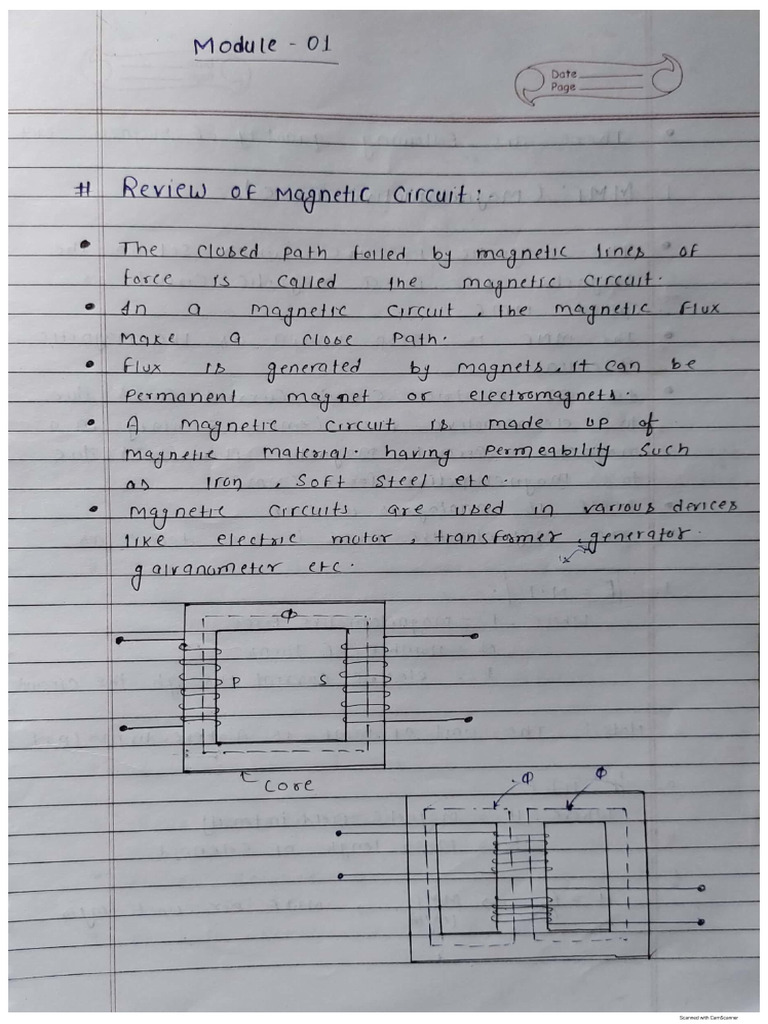 Module - 01
Date
Page
# Review of Magnetic Circuit :-
• The closed path folled by magnetic lines of
force is called the magnetic circuit.
• In a magnetic circuit, the magnetic flux
make a close path.
• Flux is generated by magnets, it can be
permanent magnet or electromagnets.
• A magnetic circuit is made up of
magnetic material. having permeability such
as Iron, soft steel etc.
• Magnetic circuits are used in various devices
like electric motor, transformer, generator.
galvanometer etc.
Φ
P S
Core
Φ Φ
Scanned with CamScanner